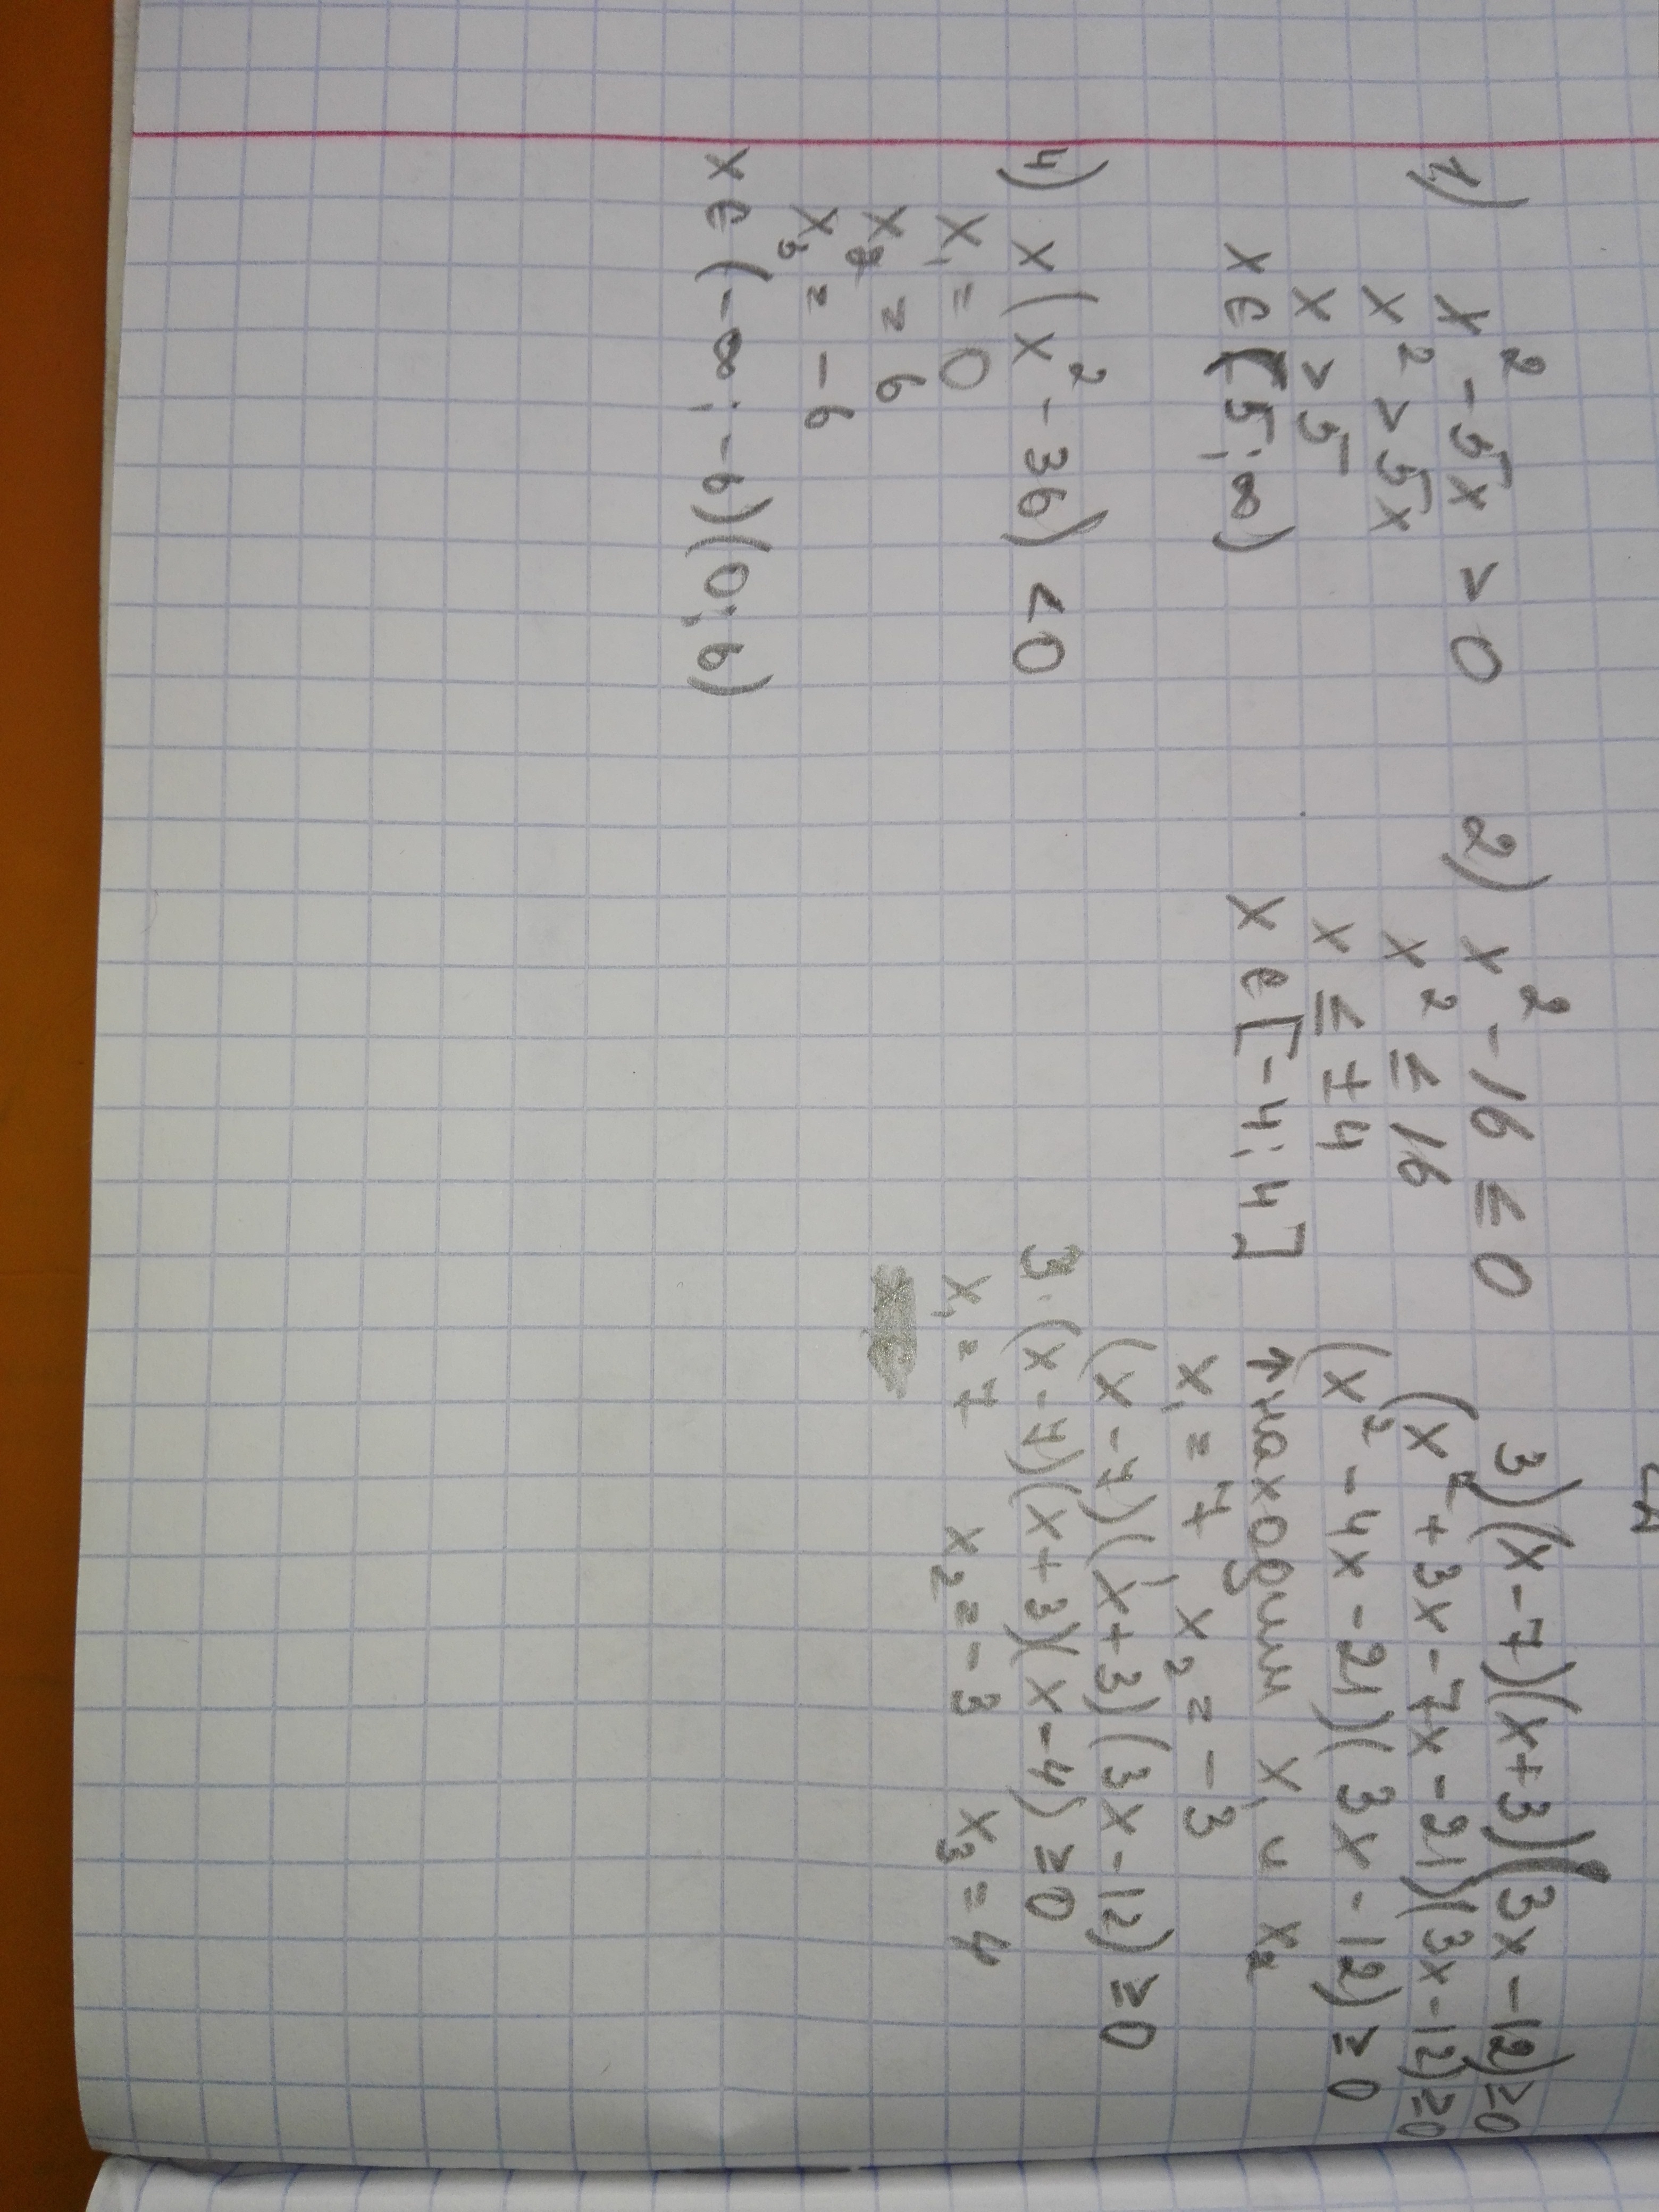 1) x² - 5x > 0
x² > 5x
x > 5
x ∈ (5; ∞)
2) x² - 16 ≤ 0
x² ≤ 16
x ≤ ±4
x ∈ [-4; 4]
3) (x-7)(x+3)(3x-12)≥0
(x²+3x-7x-21)(3x-12)≥0
(x²-4x-21)(3x-12)≥0
↑ находим x₁ и x₂
x₁=7, x₂=-3
(x-7)(x+3)(3x-12)≥0
3·(x-7)(x+3)(x-4)≥0
x₁=7 x₂=-3 x₃=4
4) x(x²-36)<0
x₁=0
x₂=6
x₃=-6
x ∈ (-∞; -6)(0; 6)